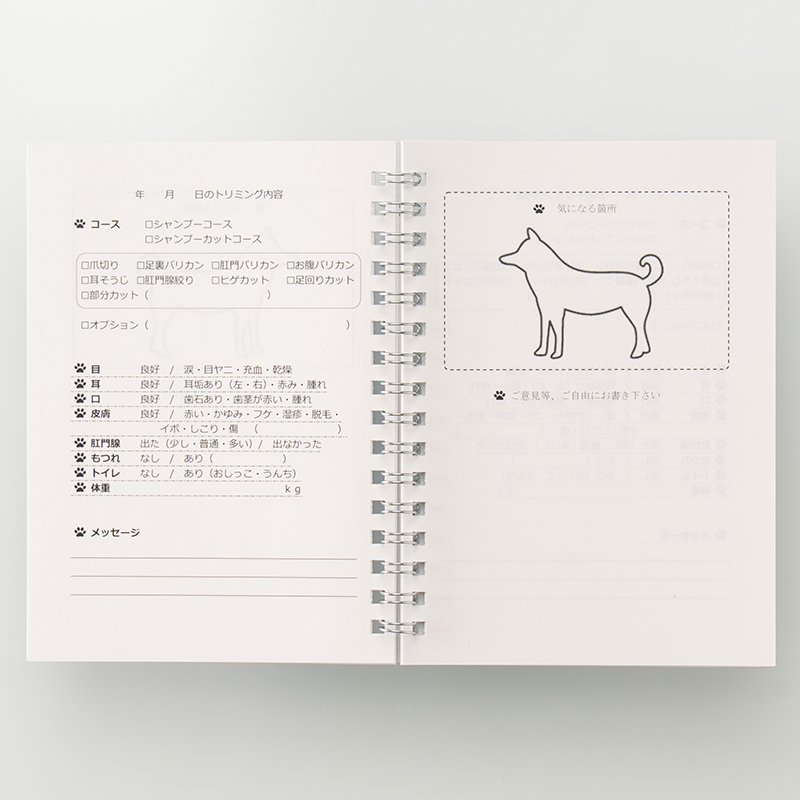 年　月　日のトリミング内容
コース　□シャンプーコース
□シャンプーカットコース
□爪切り　□足裏バリカン　□肛門バリカン　□お腹バリカン
□耳そうじ　□肛門腺絞り　□ヒゲカット　□足回りカット
□部分カット（　　　　）
□オプション（　　　　）
目　良好　/　涙・目ヤニ・充血・乾燥
耳　良好　/　耳垢あり（左・右）・赤み・腫れ
口　良好　/　歯石あり・歯茎が赤い・腫れ
皮膚　良好　/　赤い・かゆみ・フケ・湿疹・脱毛・
イボ・しこり・傷　（　　　　）
肛門腺　出た（少し・普通・多い）/　出なかった
もつれ　なし　/　あり（　　　　）
トイレ　なし　/　あり（おしっこ・うんち）
体重　ｋｇ
メッセージ
気になる箇所
ご意見等、ご自由にお書き下さい